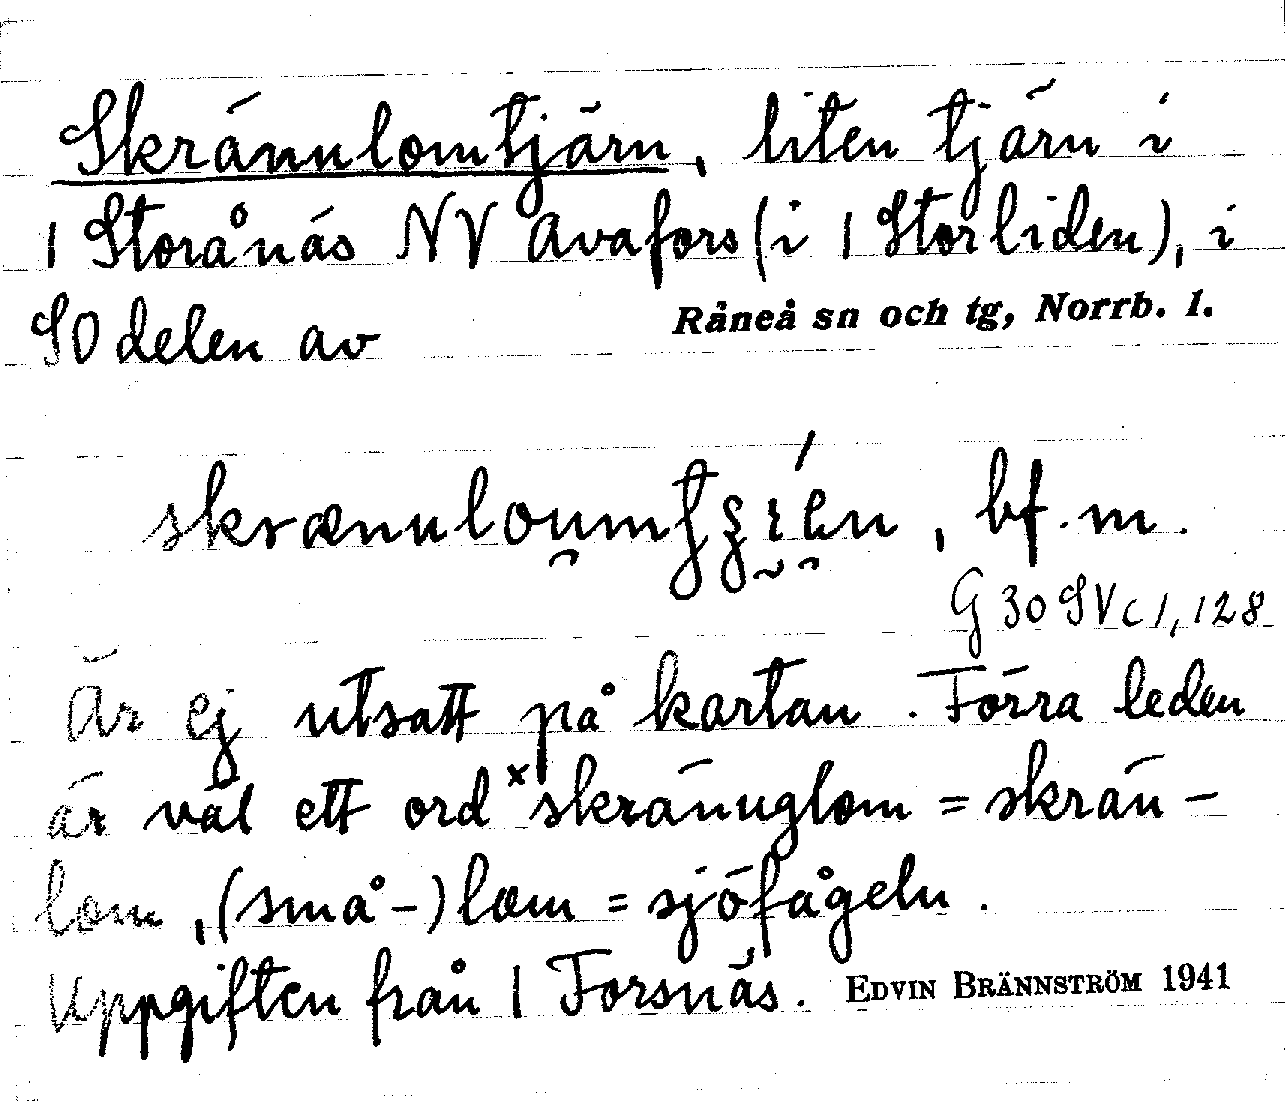 Skrännlomtjärn, liten tjärn i
1 Storånäs NV Avafors (i 1 Storliden), i
SO delen av Råneå sn och tg, Norrb. l.
bf. m.
G 30 SV c 1, 128
Är ej utsatt på kartan. Förra leden
är väl ett ord ˣskränuglom = skrän-
lom, (små-) lom = sjöfågeln.
Uppgiften från 1 Forsnäs. EDVIN BRÄNNSTRÖM 1941